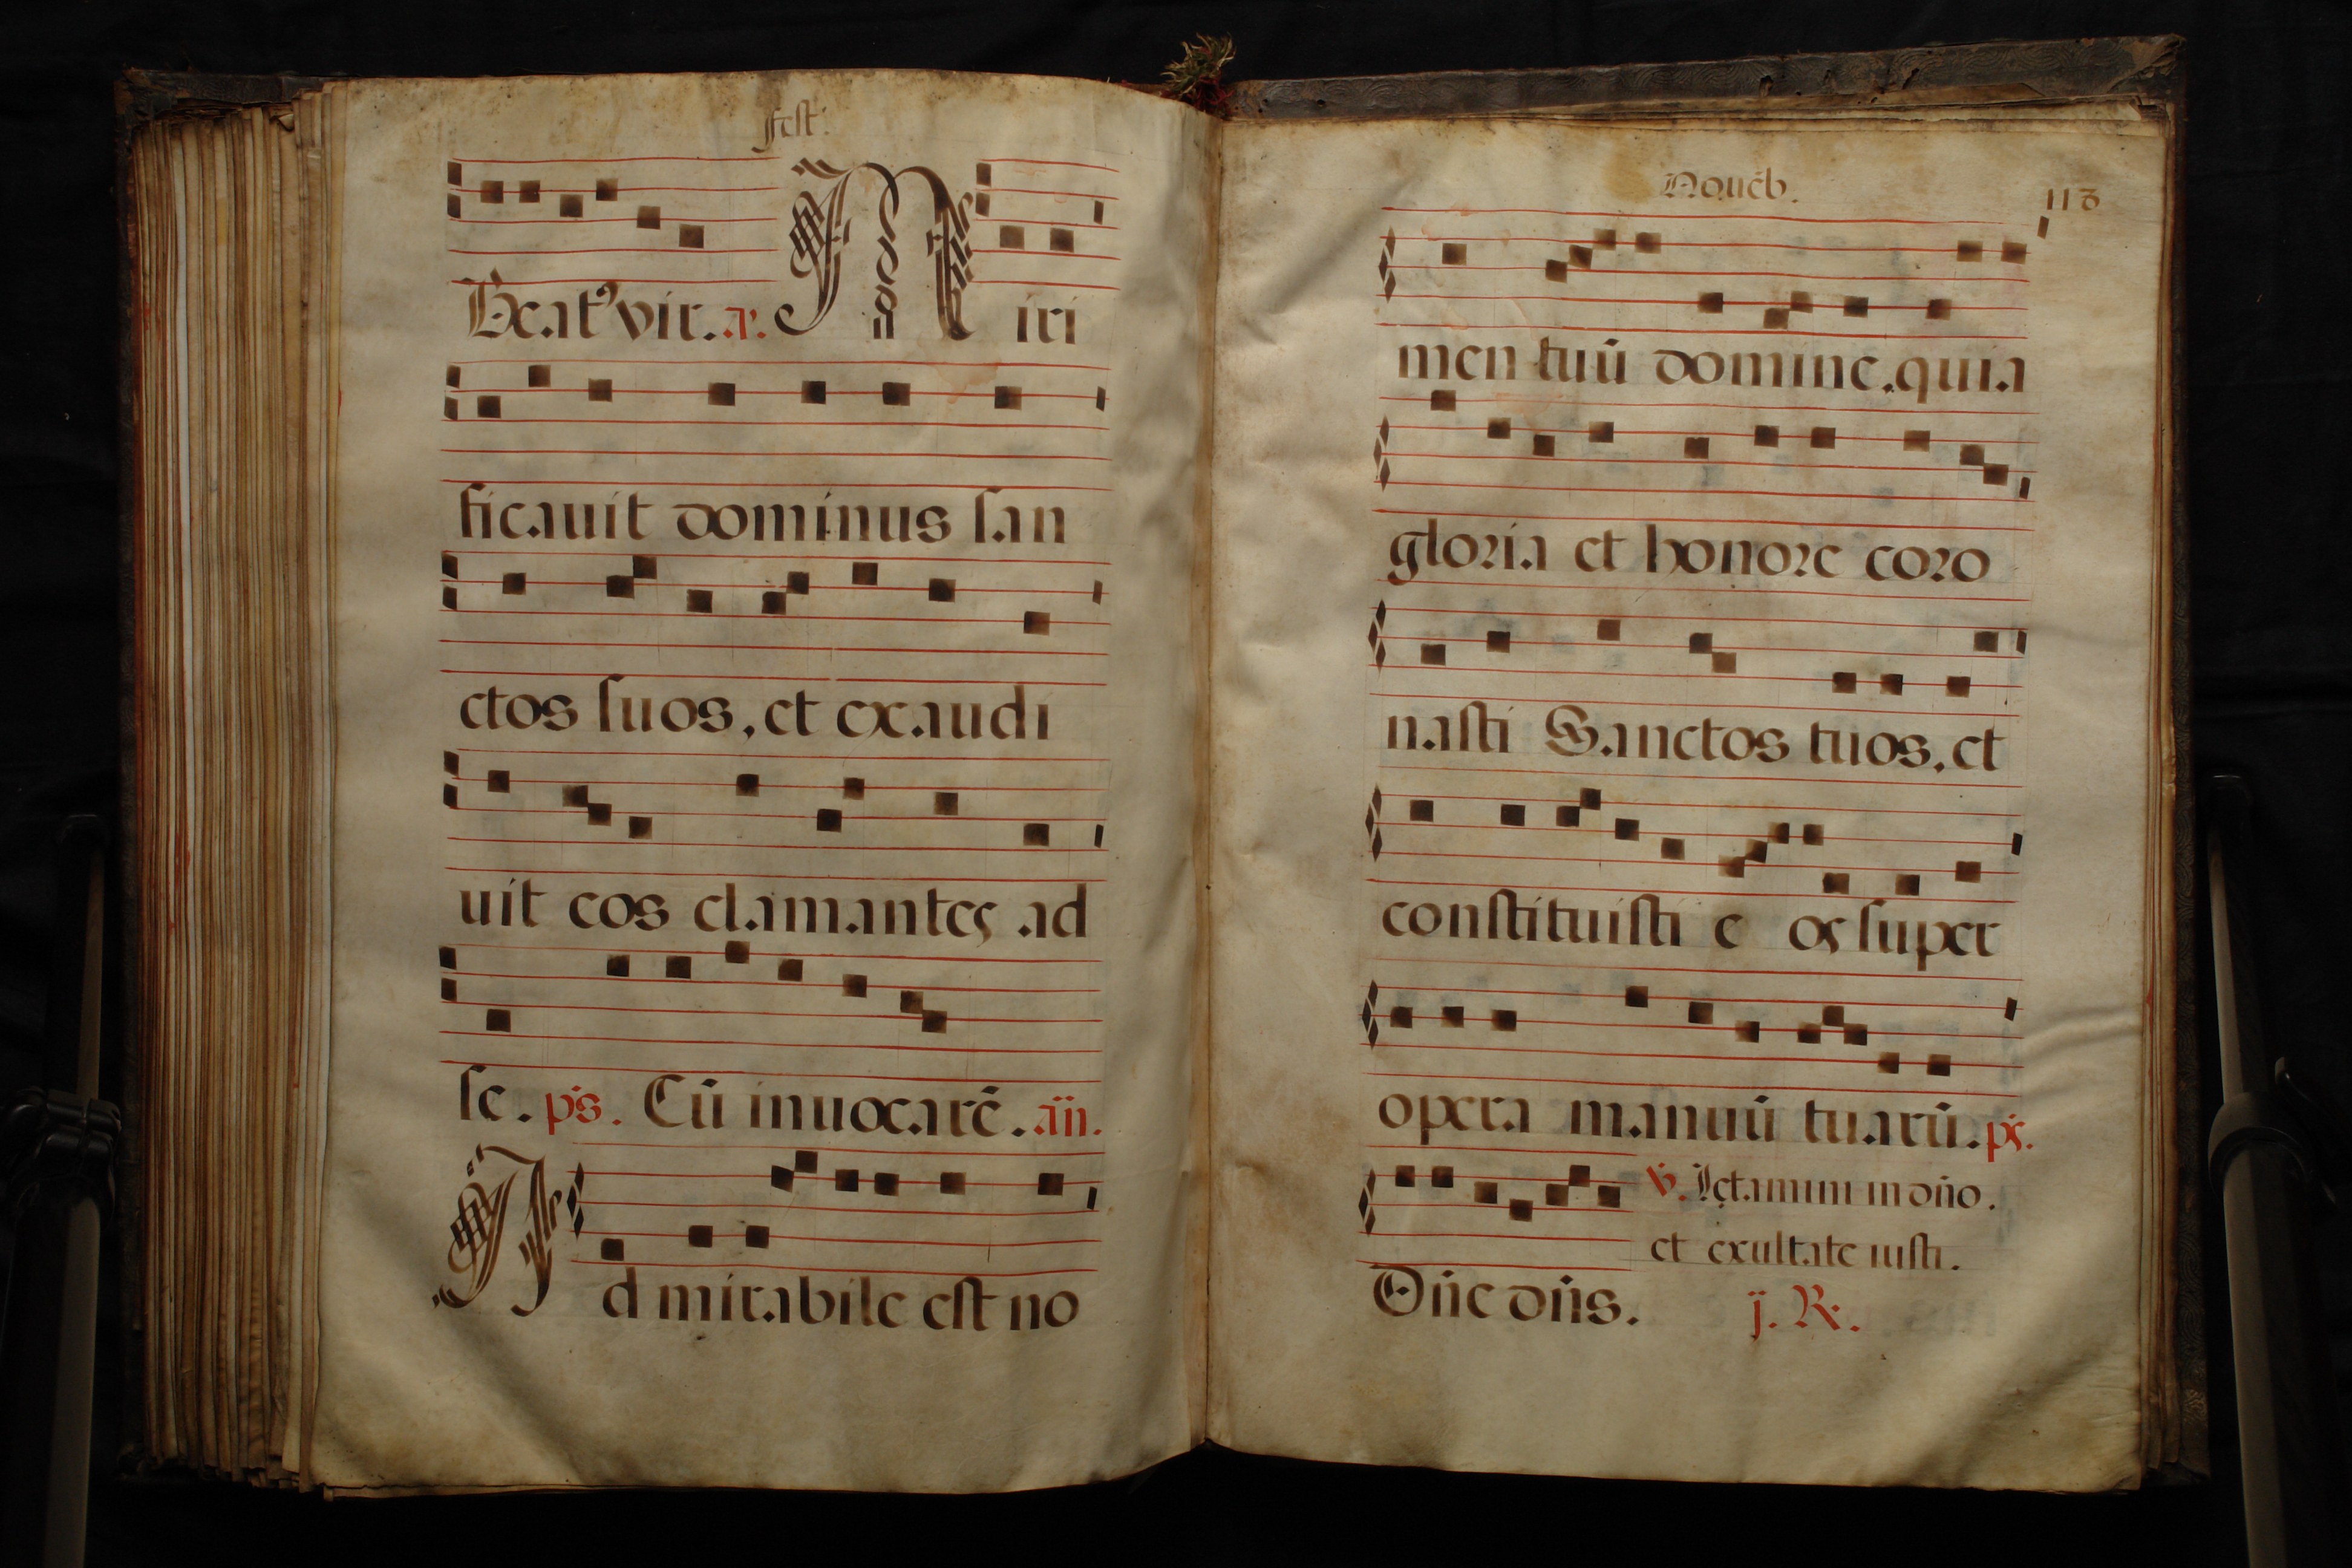 fest.
Beatꝰ vir. a. M iri
ficauit dominus san
ctos suos, et exaudi
uit eos clamantes ad
se. ps. Cū inuocarē. añ.
A d mirabile est no
Nouēb. 113
men tuū domine, quia
gloria et honore coro
nasti Sanctos tuos, et
constituisti e os super
opera manuū tuarū. ps.
℣. Lętamini in dño.
et exultate iusti.
Dñe dñs. j. R.